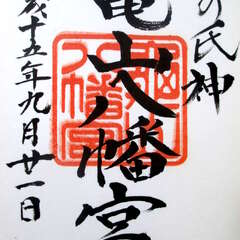 の氏神
亀山八幡宮
成十五年九月廿一日
亀山八幡宮